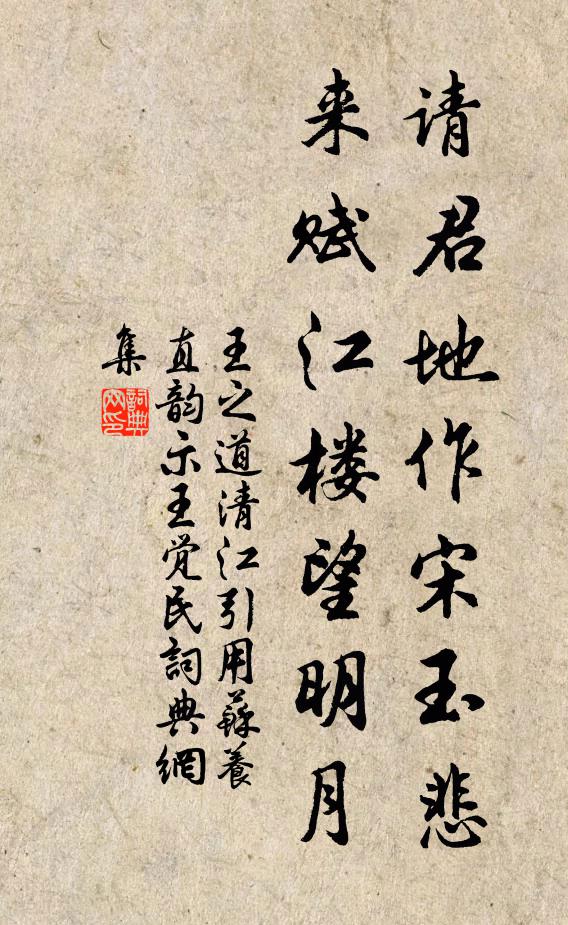 请君地作宋玉悲
来赋江楼望明月
王之道清江引用蘇養
直韵示王觉民詞典網
集
詞典網印